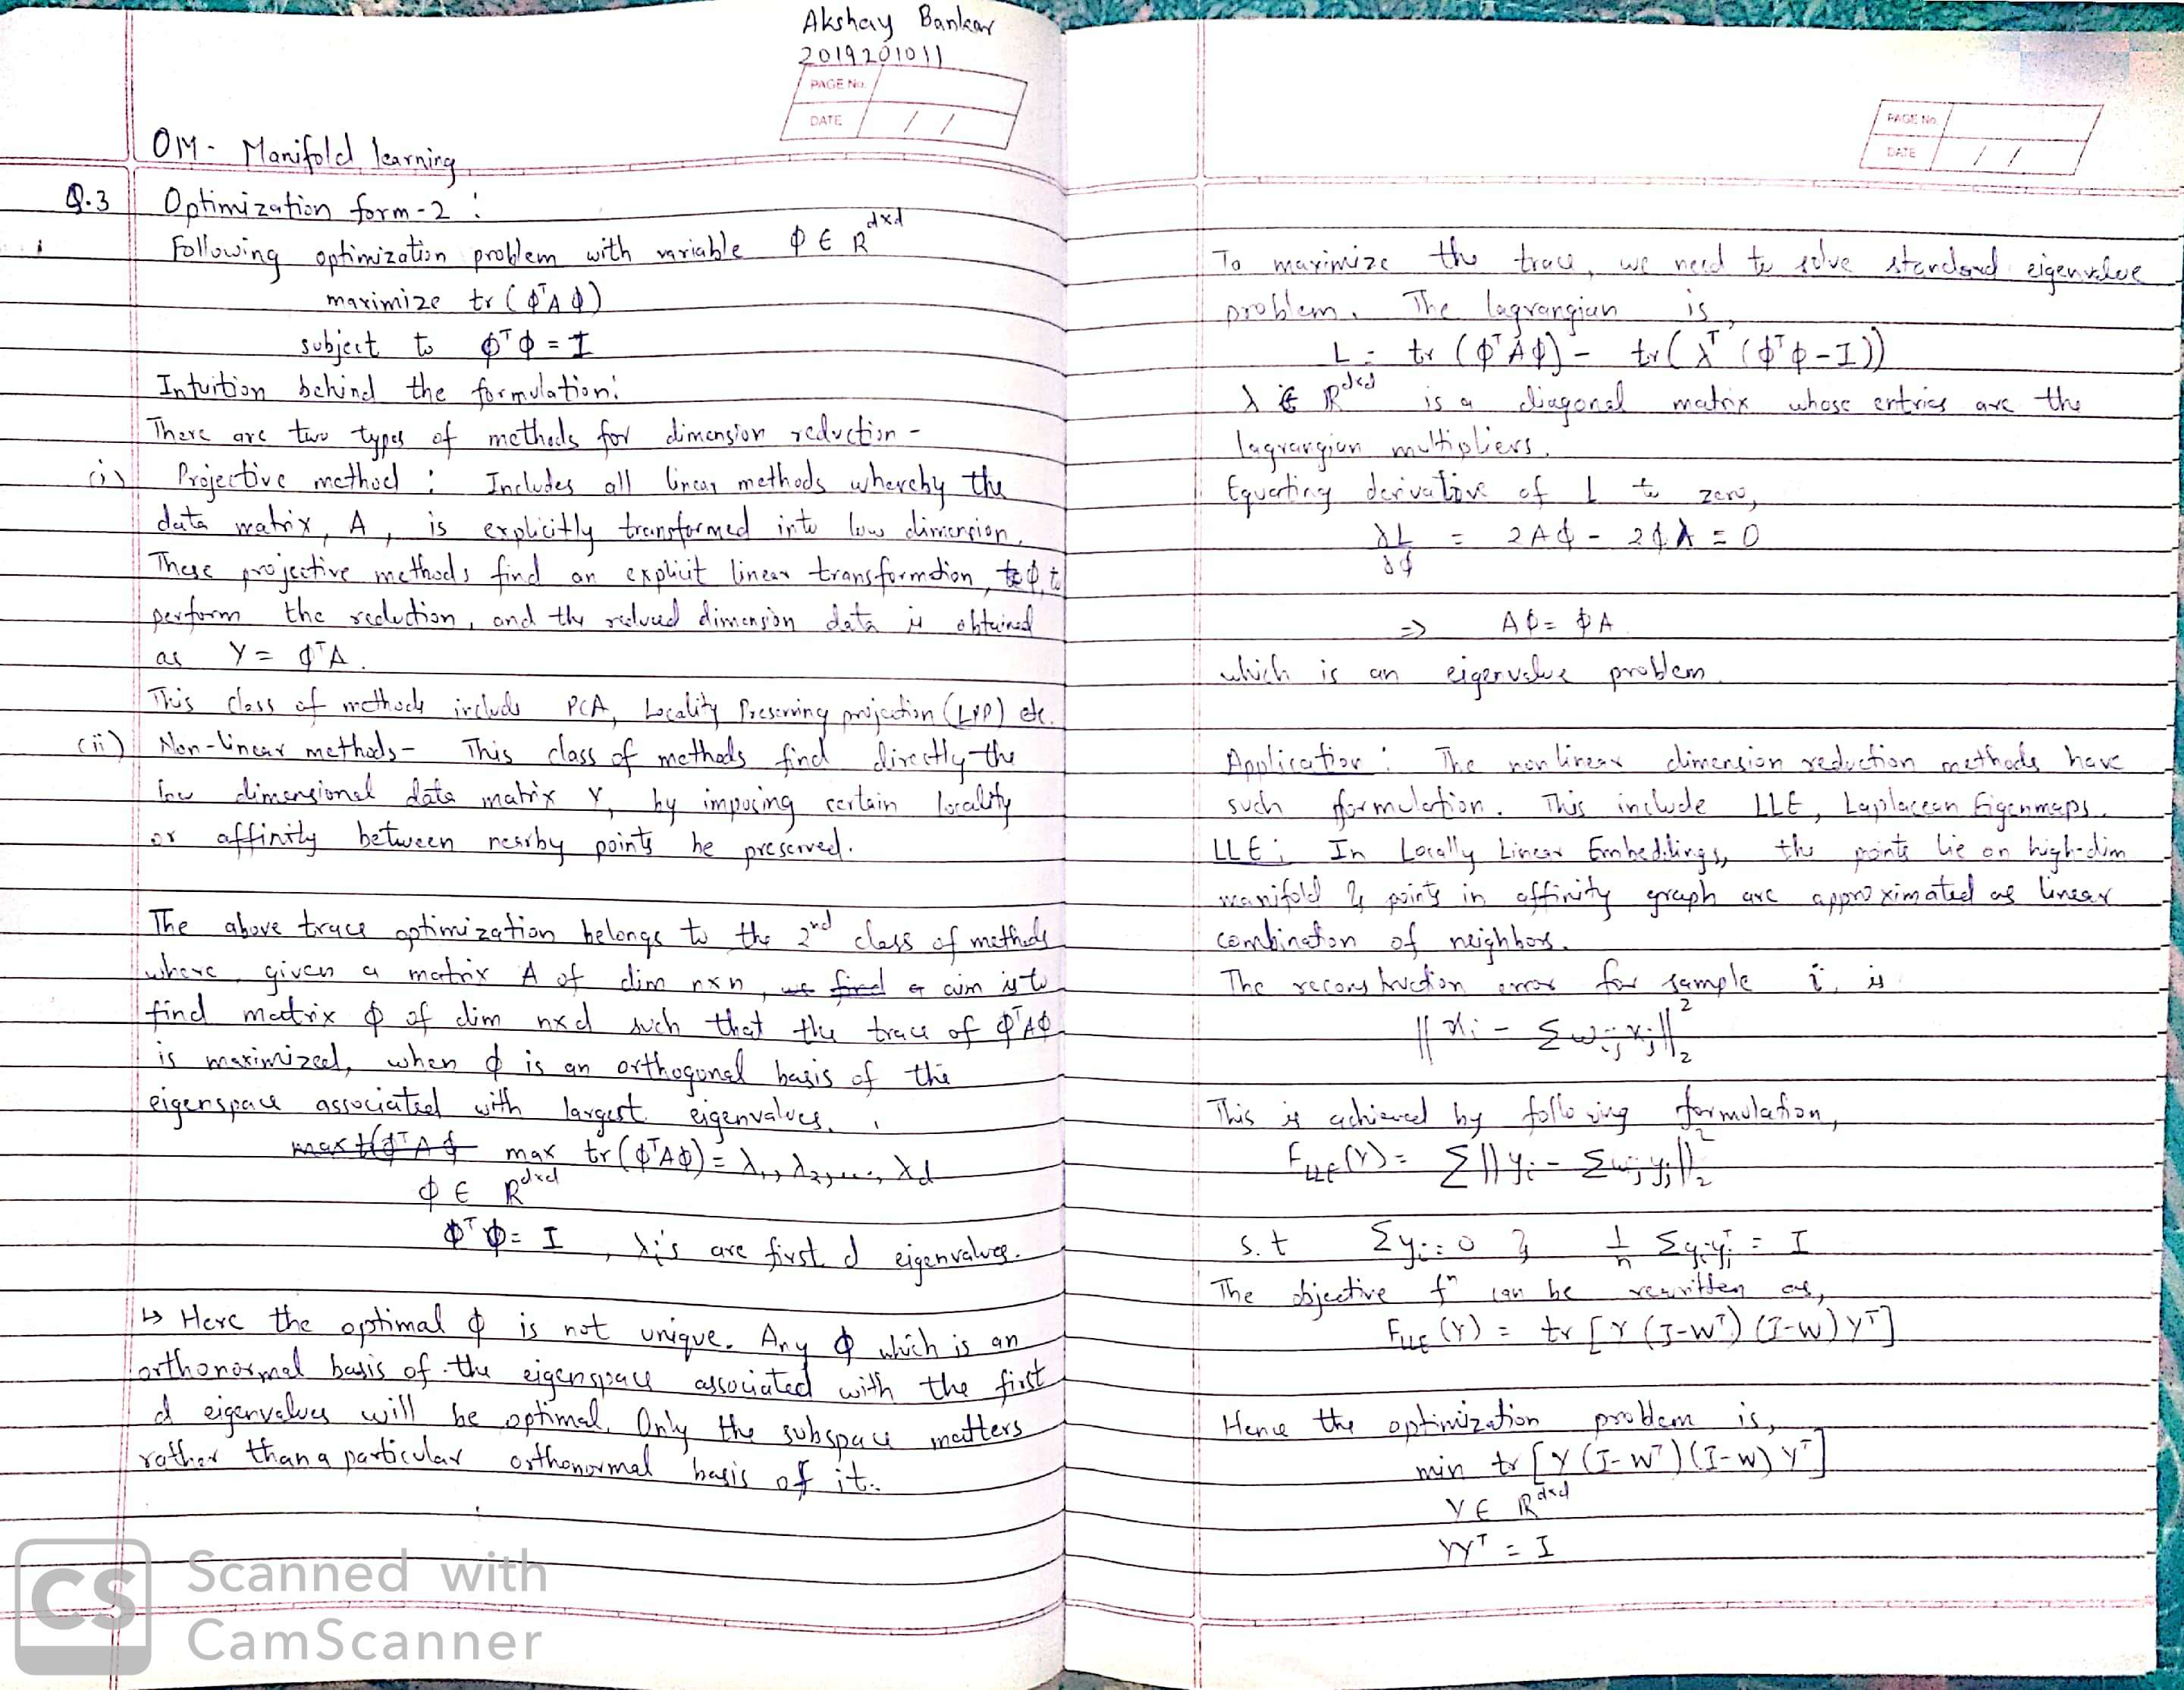 Akshay Bankar
2019201011
PAGE No.
DATE / /
OM - Manifold learning
Q.3 Optimization form-2 :
Following optimization problem with variable ϕ ∈ R^{d×d}
maximize tr (ϕ^T A ϕ)
subject to ϕ^T ϕ = I
Intuition behind the formulation:
There are two types of methods for dimension reduction -
(i) Projective method : Includes all linear methods whereby the
data matrix, A, is explicitly transformed into low dimension.
These projective methods find an explicit linear transformation, ϕ, to
perform the reduction, and the reduced dimension data is obtained
as Y = ϕ^T A.
This class of methods include PCA, Locality Preserving projection (LPP) etc.
(ii) Non-linear methods - This class of methods find directly the
low dimensional data matrix Y, by imposing certain locality
or affinity between nearby points be preserved.
The above trace optimization belongs to the 2nd class of methods
where, given a matrix A of dim n×n, we find a aim is to
find matrix ϕ of dim n×d such that the trace of ϕ^T A ϕ
is maximized, when ϕ is an orthogonal basis of the
eigenspace associated with largest eigenvalues.
max tr(ϕ^T A ϕ max tr (ϕ^T A ϕ) = λ1, λ2, ..., λd
ϕ ∈ R^{d×d}
ϕ^T ϕ = I , λi's are first d eigenvalues.
↳ Here the optimal ϕ is not unique. Any ϕ which is an
orthonormal basis of the eigenspace associated with the first
d eigenvalues will be optimal. Only the subspace matters
rather than a particular orthonormal basis of it.
Scanned with
CS CamScanner
PAGE No.
DATE / /
To maximize the trace, we need to solve standard eigenvalue
problem. The lagrangian is,
L = tr (ϕ^T A ϕ) - tr (λ^T (ϕ^T ϕ - I))
λ ∈ R^{d×d} is a diagonal matrix whose entries are the
lagrangian multipliers.
Equating derivative of L to zero,
∂L/∂ϕ = 2Aϕ - 2ϕλ = 0
⇒ Aϕ = ϕA
which is an eigenvalue problem.
Application : The non linear dimension reduction methods have
such formulation. This include LLE, Laplacean Eigenmaps.
LLE : In Locally Linear Embeddings, the points lie on high-dim
manifold & points in affinity graph are approximated as linear
combination of neighbors.
The reconstruction error for sample i, is
||xi - Σ wij xj||_2^2
This is achieved by following formulation,
F_LLE(Y) = Σ||yi - Σ wij yj||_2^2
s.t Σyi = 0 & 1/n Σ yi yi^T = I
The objective f^n can be rewritten as,
F_LLE (Y) = tr [Y (I-W^T) (I-W) Y^T]
Hence the optimization problem is,
min tr [Y (I-W^T) (I-W) Y^T]
Y ∈ R^{d×d}
YY^T = I